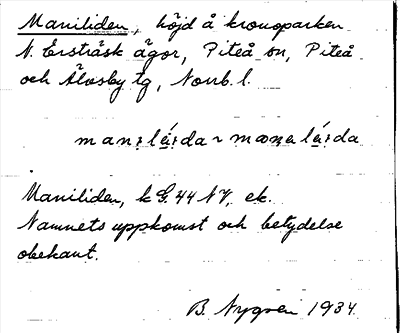 Maniliden, höjd å kronoparken
N. Ersträsk ägor, Piteå sn, Piteå
och Älvsby tg, Norrb. l.
Maniliden, k G. 44 NV, ek.
Namnets uppkomst och betydelse
obekant.
B. Nygren 1934